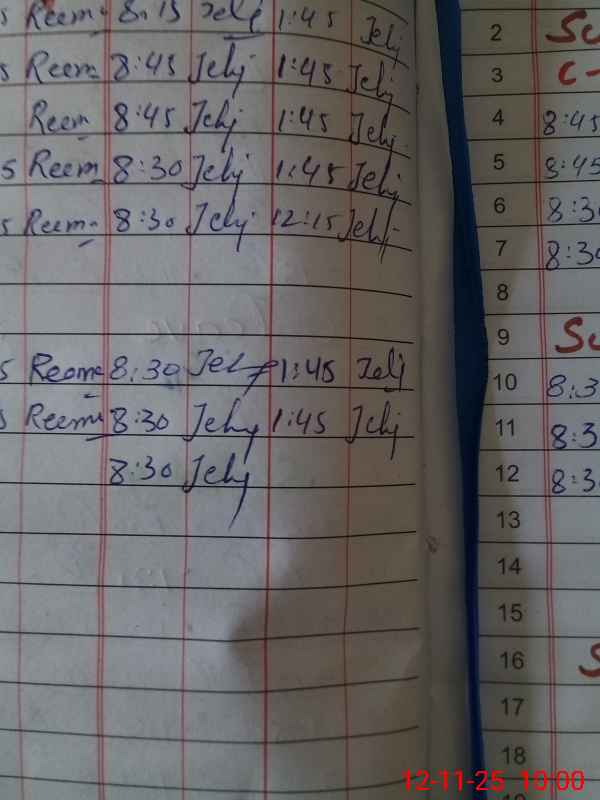 s Reem 8:15 Jehj 1:45 Jehj
s Reem 8:45 Jehj 1:45 Jehj
Reem 8:45 Jehj 1:45 Jehj
5 Reem 8:30 Jehj 1:45 Jehj
5 Reem 8:30 Jehj 12:15 Jehj
5 Reem 8:30 Jehj 1:45 Jehj
Reem 8:30 Jehj 1:45 Jehj
8:30 Jehj
2 Su
3 C-
4 8:45
5 8:45
6 8:30
7 8:30
8
9 Su
10 8:3
11 8:3
12 8:30
13
14
15
16 S
17
18
12-11-25 10:00